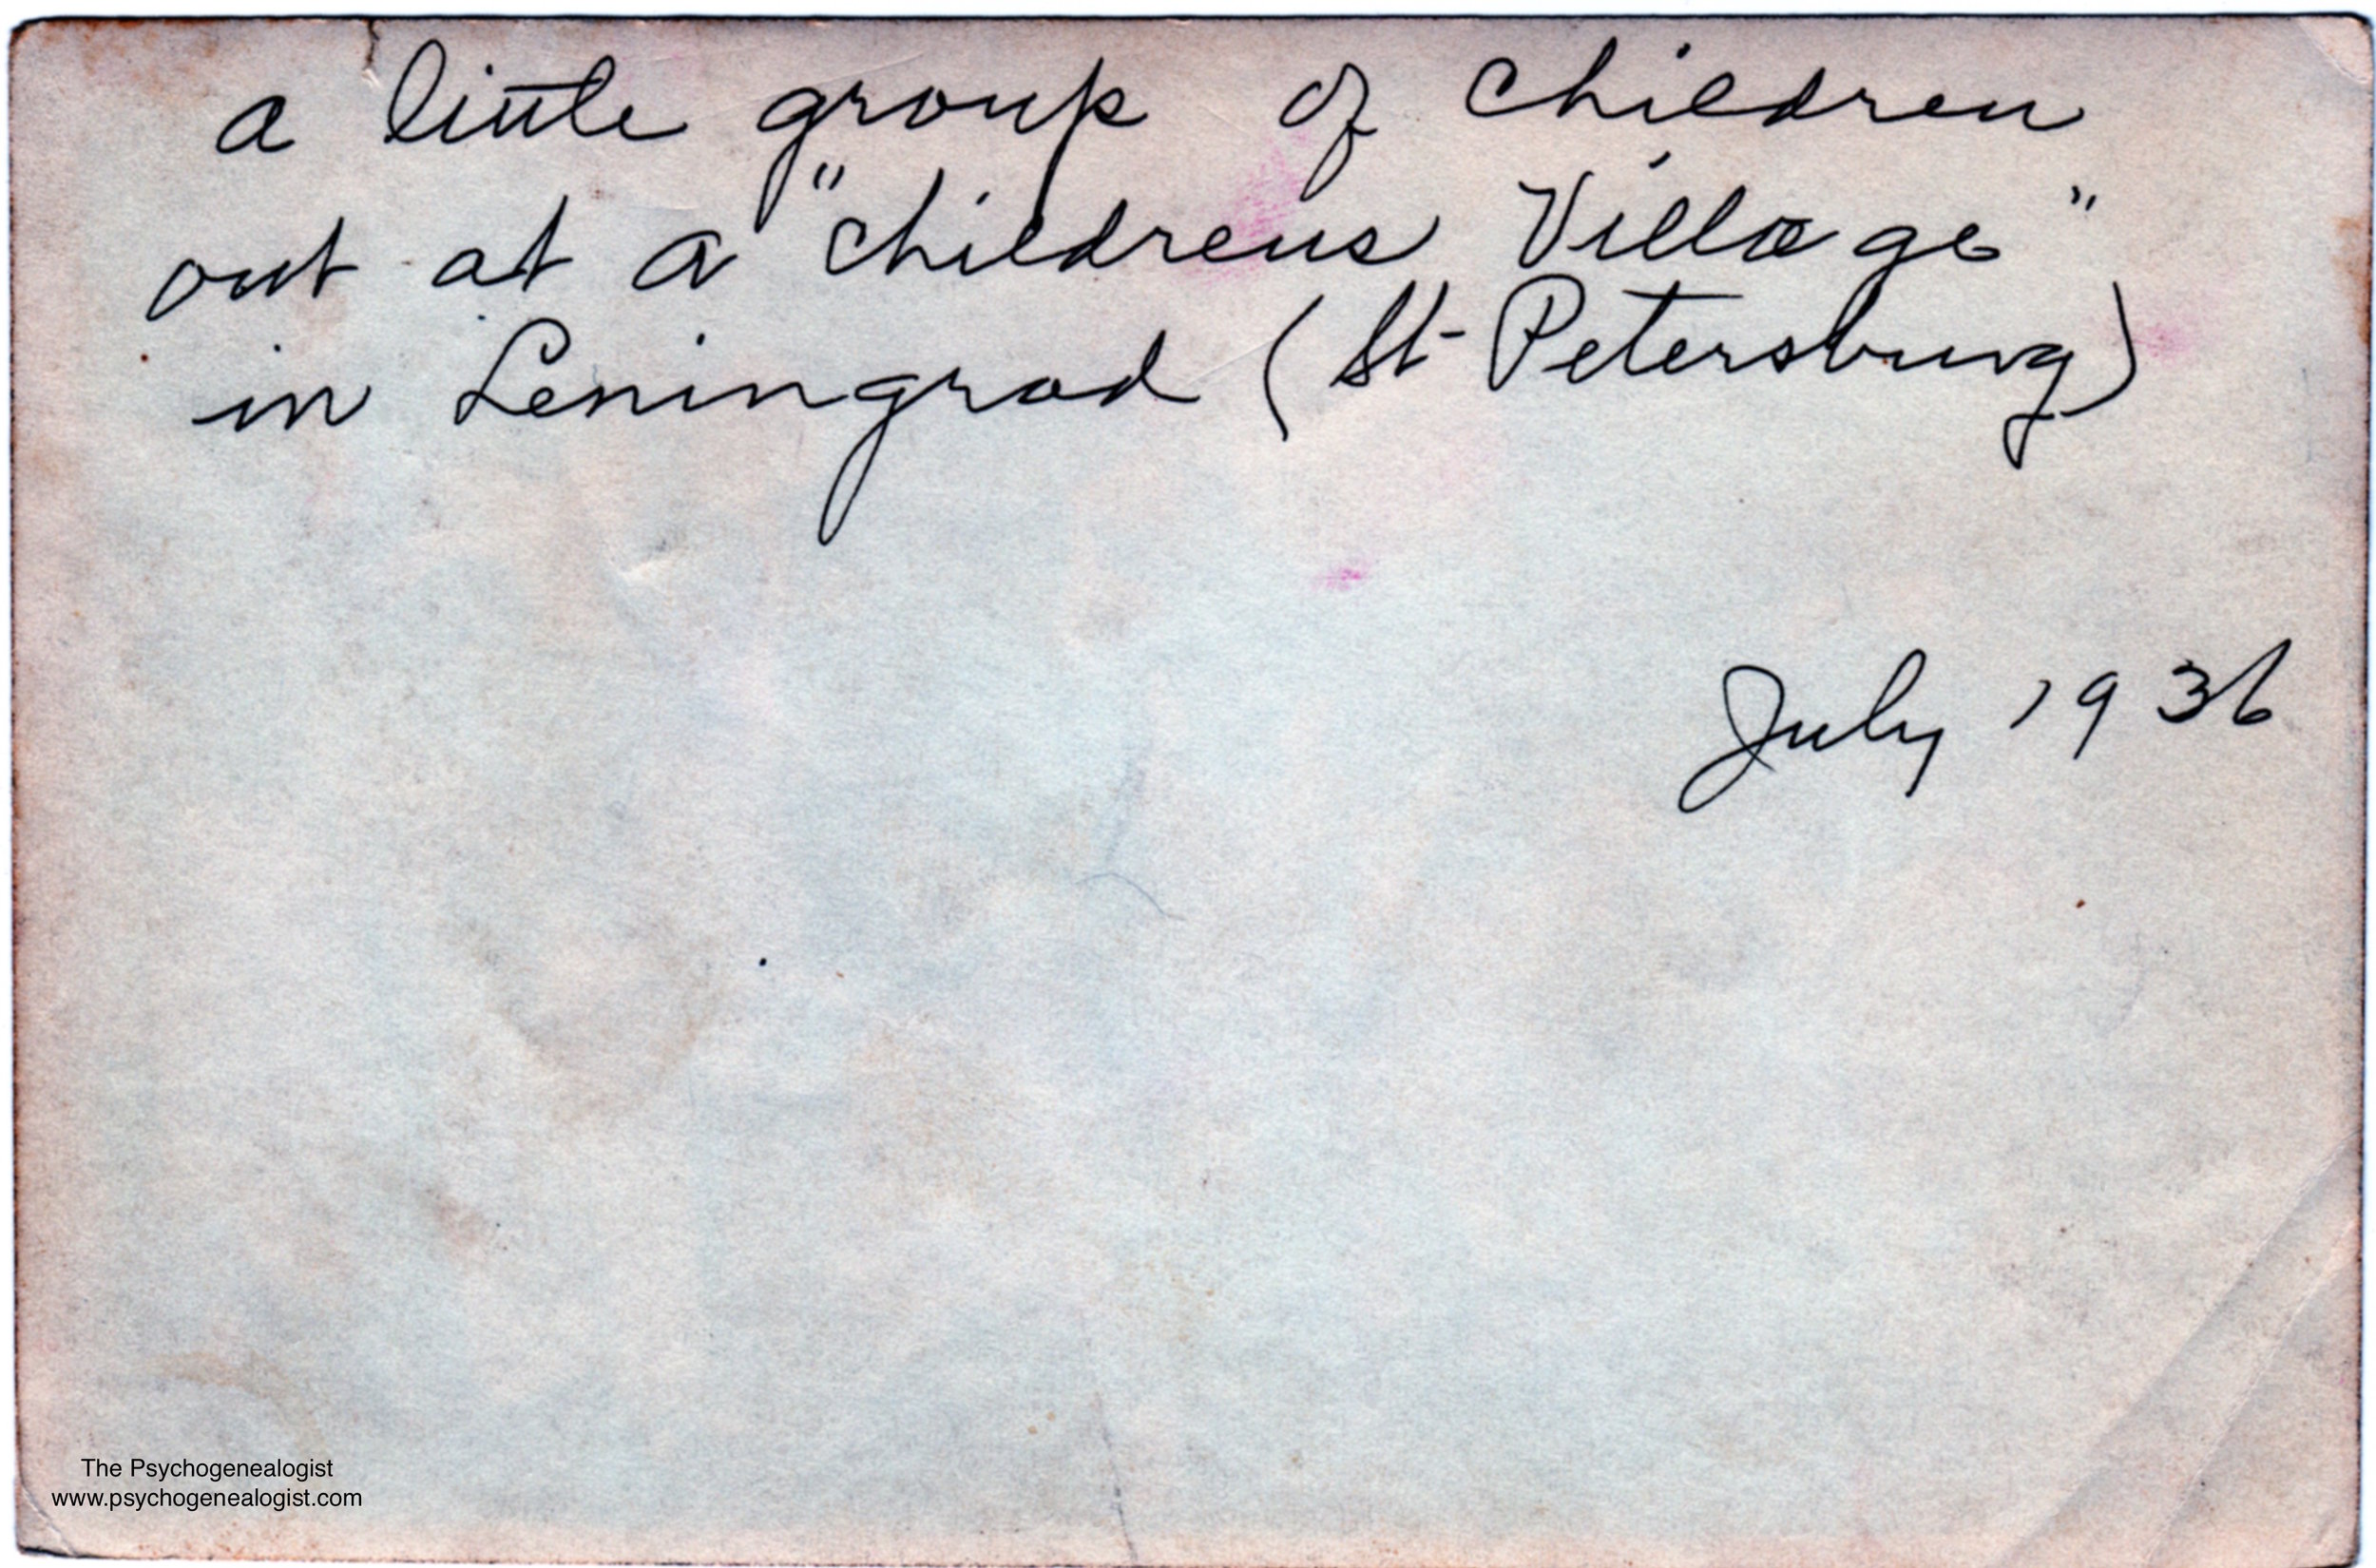 a little group of children
out at a "childrens Village"
in Leningrad (St Petersburg)
July 1936
The Psychogenealogist
www.psychogenealogist.com